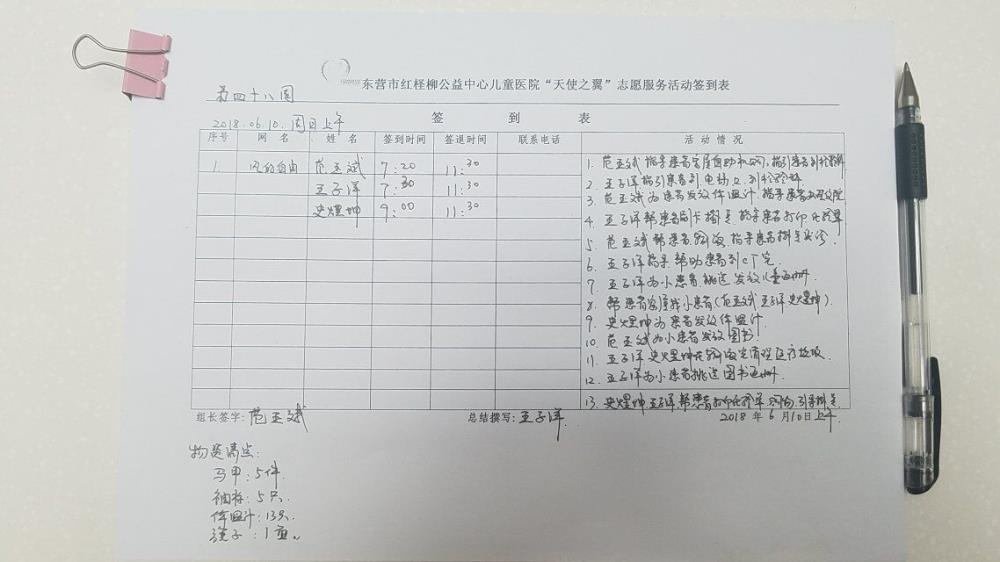 东营市红柽柳公益中心儿童医院“天使之翼”志愿服务活动签到表
第四十八周
2018.06.10.周日上午
签 到 表
序号 网 名 姓 名 签到时间 签退时间 联系电话 活 动 情 况
1. 风的自由 范玉斌 7:20 11:30
王子洋 7:30 11:30
史煜坤 9:00 11:30
1. 范玉斌指导患者家属自助机
2. 王子洋指引患者到电梯口
3. 范玉斌为患者发放体温计.指导患者
4. 王子洋帮患者刷卡挂号.指导患者打印化验单
5. 范玉斌帮患者 指导患者挂号
6. 王子洋指导帮助患者到CT室
7. 王子洋为小患者挑选发放儿童画册.
8. 帮患者家属找小患者(范玉斌 王子洋 史煜坤).
9. 史煜坤为患者发放体温计
10. 范玉斌为小患者发放图书.
11. 王子洋 史煜坤在 医疗垃圾.
12. 王子洋为小患者挑选图书画册.
13. 史煜坤 王子洋帮患者打印化验单
组长签字:范玉斌 总结撰写:王子洋. 2018 年 6 月10日上午.
物资清点:
马甲:5件.
袖标:5只.
体温计:13只.
旗子:1面.